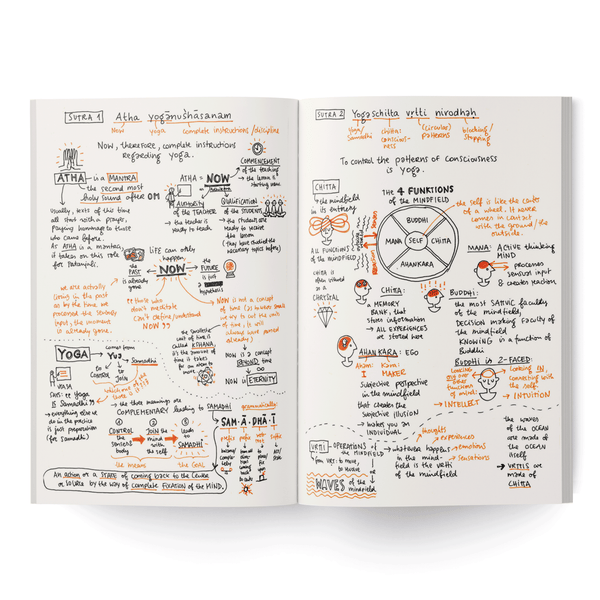 SUTRA 1 Atha yogānuśhāsanam
Now yoga complete instructions/discipline
Now, therefore, complete instructions
regarding yoga.
ATHA is a MANTRA
the second most
holy sound after OM
Usually, texts of this time
all start with a prayer,
paying hommage to those
who came before.
As ATHA is a mantra,
it takes on this role
for Patanjali.
COMMENCEMENT
of the teaching
→ the lesson is
starting now
ATHA = NOW
AUTHORITY
of the TEACHER
→ the teacher is
ready to teach
QUALIFICATION
of the STUDENTS
→ the students are
ready to receive
the lesson
(they have studied the
necessary topics before)
LIFE can only
happen
NOW
the PAST
is already
gone
the FUTURE
is just
hypothesis
we are actually
living in the past
as by the time we
processed the sensory
input, the moment
is already gone.
those who
don't meditate
can't define/understand
NOW
NOW is not a concept
of time
it will
always have passed
already)
the smallest
unit of time is
called KSHANA,
NOW is a concept
BEYOND time
NOW is ETERNITY
YOGA
comes from
YUJ Samadhi
to
CONTROL
to
join
which one?
VYASA
says: Yoga
is Samadhi
→ everything else we
do in the practice
is just preparation
for Samadhi
→ the three meanings are
COMPLEMENTARY leading to SAMADHI
1 CONTROL
the
senses/
body
2 JOIN the
mind
with
the self
3 leads
to
SAMADHI
the means the GOAL
grammatically
SAM-Ā-DHĀ-I
An action or a STATE of coming back to the CENTRE
or SOURCE by the way of complete FIXATION of the MIND.
SUTRA 2 Yogaśchitta vṛtti nirodhaḥ
yoga/
Samadhi
chitta:
conscious-
ness
(circular)
patterns
blocking/
stopping
To control the patterns of consciousness
is yoga.
CHITTA
→ the mindfield
in its entirety
ALL FUNCTIONS
of the MINDFIELD
CHITTA is
often viewed
as a
CHRYSTAL
THE 4 FUNKTIONS
OF THE MINDFIELD
BUDDHI
MANA SELF CHITTA
AHANKARA
the self is like the center
of a wheel. It never
comes in contact
with the ground/the
outside.
MANA: ACTIVE thinking
MIND
→ processes
sensory input
& creates reaction
CHITTA:
a MEMORY
BANK, that
stores information
→ ALL EXPERIENCES
are stored here
BUDDHI:
the most SATVIC faculties
of the mindfield,
DECISION making faculty of
the mindfield
KNOWING is a function of
Buddhi
AHANKARA: EGO
Aham: I
Kara:
MAKER
Subjective perspective
in the mindfield
that creates the
subjective illusion
→ makes you an
INDIVIDUAL
BUDDHI is 2-FACED:
looking
OUT over
other
functions
of mind
→ INTELLECT
looking IN,
connecting with
the self
→ INTUITION
VRTTI - OPERATIONS of
the MINDFIELD
from VRT: to move,
to revolve
WAVES of the
mindfield
→ whatever happens
in the mind-
field is the vrtti
of the mindfield
thoughts
experiences
emotions
sensations
the WAVES
of the OCEAN
are made of
the OCEAN
itself
→ VRTTIS are
made of
CHITTA